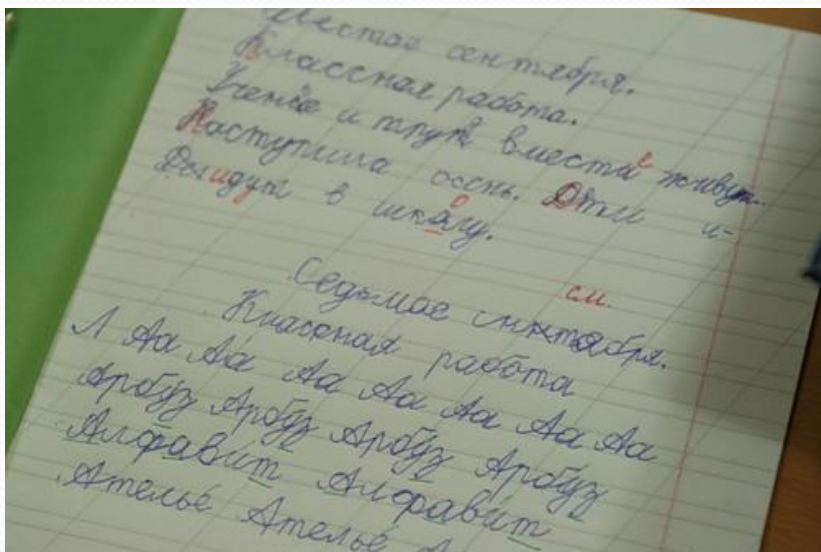 Шестое сентября.
Классная работа.
Ученье и труд вместе живут.
Наступила осень. Дети и-
ду в школу.
Седьмое снктября.
см.
Классная работа
Л Аа Аа Аа Аа Аа Аа Аа
Арбуз Арбуз Арбуз Арбуз
Алфавит Алфавит
Ателье Ателье А